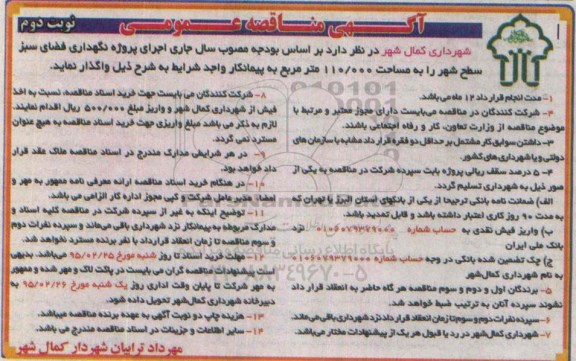 آگهی مناقصه عمومی
نوبت دوم
شهرداری کمال شهر در نظر دارد بر اساس بودجه مصوب سال جاری اجرای پروژه نگهداری فضای سبز
سطح شهر را به مساحت ۱۱۰/۰۰۰ متر مربع به پیمانکار واجد شرایط به شرح ذیل واگذار نماید.
۱- مدت انجام قرارداد ۱۲ ماه می باشد.
۲- شرکت کنندگان در مناقصه می بایست دارای مجوز معتبر و مرتبط با
موضوع مناقصه از وزارت تعاون، کار و رفاه اجتماعی باشند.
۳- داشتن سوابق کار مشتمل بر حداقل دو فقره قرارداد مشابه با سازمان های
دولتی و یا شهرداری های کشور.
۴- ۵ درصد سقف ریالی پروژه بابت سپرده شرکت در مناقصه به یکی از
صور ذیل به شهرداری تسلیم گردد.
الف) ضمانت نامه بانکی ترجیحا از یکی از بانکهای استان البرز یا تهران که
به مدت ۹۰ روز کاری اعتبار داشته باشد و قابل تمدید باشد.
ب) واریز فیش نقدی به حساب شماره نزد
بانک ملی ایران
ج) چک تضمین شده بانکی در وجه حساب شماره
به نام شهرداری کمال شهر
۵- برندگان اول و دوم و سوم مناقصه هر گاه حاضر به انعقاد قرارداد
نشوند سپرده آنان به ترتیب ضبط خواهد شد.
۶- سپرده نفرات دوم و سوم تا زمان انعقاد قرارداد نزد شهرداری باقی می ماند.
۷- شهرداری کمال شهر در رد یا قبول هر یک از پیشنهادات مختار می باشد.
۸- شرکت کنندگان می بایست جهت خرید اسناد مناقصه، نسبت به اخذ
فیش از شهرداری کمال شهر و واریز مبلغ ۵۰۰/۰۰۰ ریال اقدام نمایند.
لازم به ذکر می باشد مبلغ واریزی جهت خرید اسناد مناقصه به هیچ عنوان
مسترد نمی گردد.
۹- در هر شرایطی مدارک مندرج در اسناد مناقصه ملاک عقد قرار
داد خواهد بود.
۱۰- در هنگام خرید اسناد مناقصه ارائه معرفی نامه ممهور به مهر و
امضاء مدیر عامل شرکت و کپی مجوز اداره کار الزامی می باشد.
۱۱- توضیح اینکه به غیر از سپرده شرکت در مناقصه کلیه اسناد و
مدارک مربوطه به پیمانکار نزد شهرداری باقی می ماند و سپرده نفرات دوم
و سوم مناقصه تا زمان انعقاد قرارداد با نفر برنده مسترد نخواهد شد.
۱۲- مهلت خرید اسناد تا روز شنبه مورخ ۹۵/۰۲/۲۵ می باشد. بدیهی
است پیشنهادات مناقصه گران می بایست در پاکت لاک و مهر شده و ممهور
به مهر شرکت تا پایان وقت اداری روز یک شنبه مورخ ۹۵/۰۲/۲۶ به
دبیرخانه شهرداری کمال شهر تحویل داده شود.
۱۳- هزینه چاپ دو نوبت آگهی به عهده برنده مناقصه میباشد.
۱۴- سایر اطلاعات و جزییات در اسناد مناقصه مندرج می باشد.
مهرداد ترابیان شهردار کمال شهر